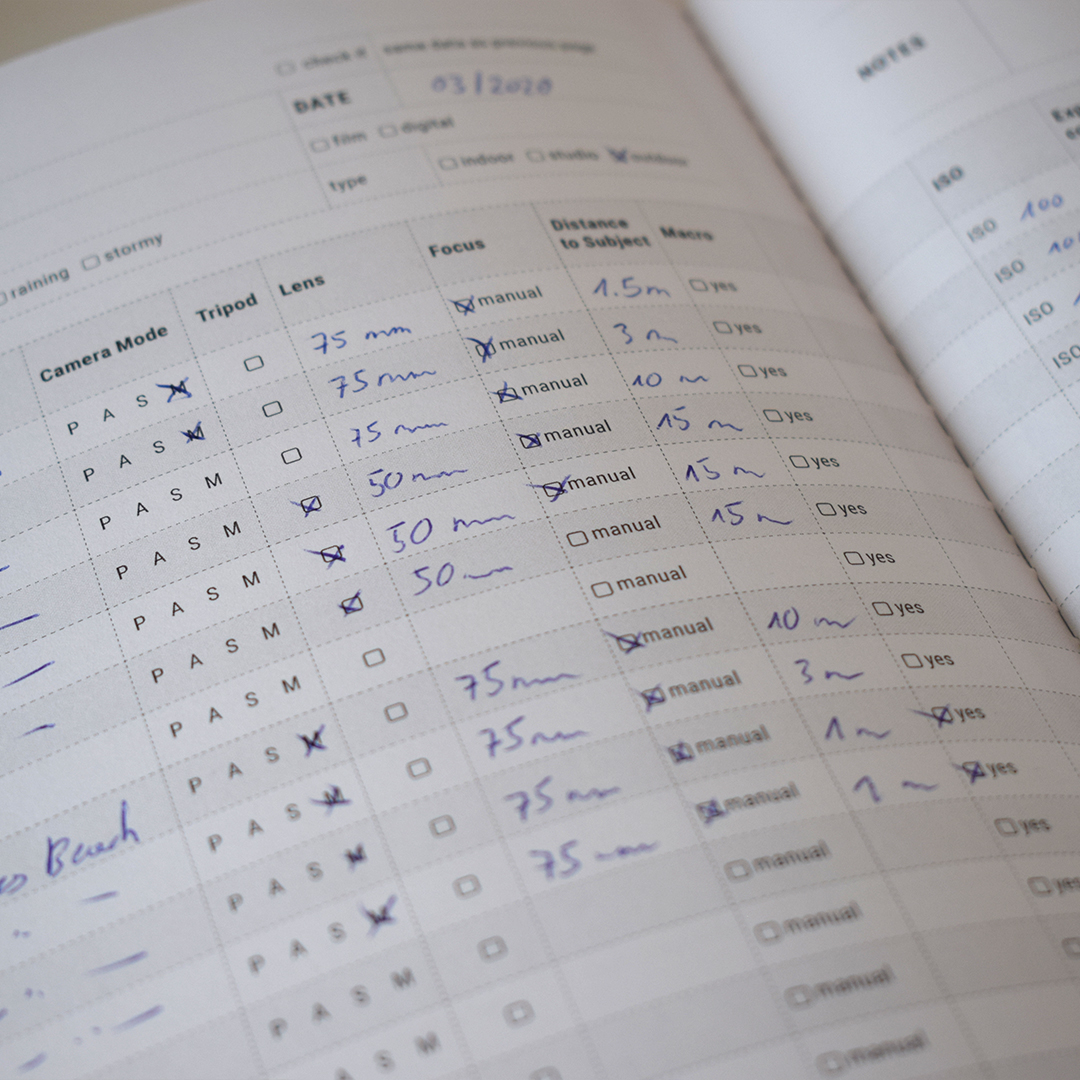 check if same data as previous page
DATE 03/2020
film digital
type indoor studio outdoor
raining stormy
Camera Mode Tripod Lens Focus Distance to Subject Macro
P A S M 75 mm manual 1.5m yes
P A S M 75 mm manual 3 m yes
P A S M 75 mm manual 10 m yes
P A S M 50 mm manual 15 m yes
P A S M 50 mm manual 15 m yes
P A S M 50 mm manual 15 m yes
P A S M manual yes
Beach P A S M 75 mm manual 10 m yes
P A S M 75 mm manual 3 m yes
P A S M 75 mm manual 1 m yes
P A S M 75 mm manual 1 m yes
P A S M manual yes
A S M manual yes
manual
manual
NOTES
ISO
ISO 100
ISO
ISO
ISO